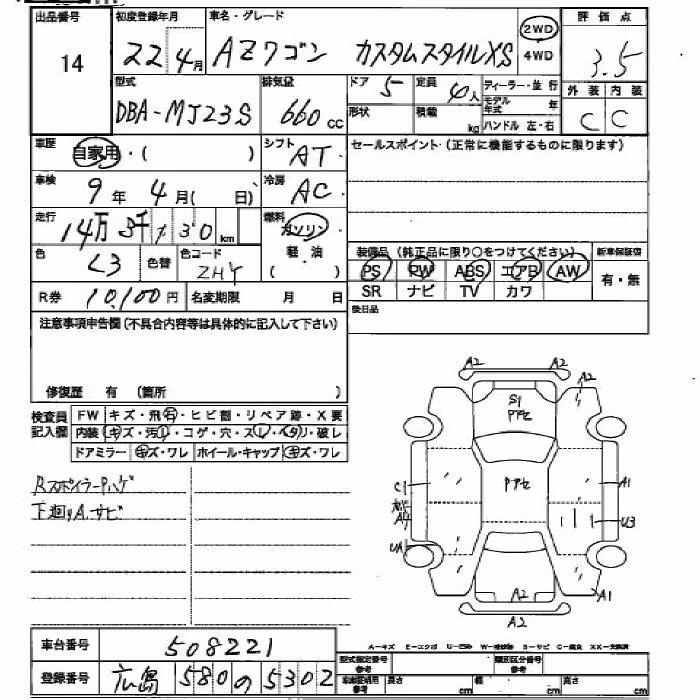 出品番号 初度登録年月 車名・グレード 2WD 評価点
14 22年4月 AZワゴン カスタムスタイルXS 4WD 3.5
型式 排気量 ドア 5 定員 4人 ディーラー・並行 外装 内装
DBA-MJ23S 660cc 形状 積載 kg モデル年式 年 C C
ハンドル 左・右
車歴 自家用・( ) シフト AT セールスポイント・(正常に機能するものに限ります)
車検 9年4月( 日) 冷房 AC
走行 14万3千130km 燃料 ガソリン
色 クロ 色替 色コード ZHY 軽油 ( ) 装備品 (純正品に限り○をつけてください) 新車保証書
PS PW ABS エアB AW 有・無
R券 10,100円 名変期限 月 日 SR ナビ TV カワ
注意事項申告欄(不具合内容等は具体的に記入して下さい) 後日品
修復歴 有 (箇所 )
検査員記入欄 FW キズ・飛石・ヒビ割・リペア跡・X要
内装 キズ・汚レ・コゲ・穴・スレ・ヘタリ・破レ
ドアミラー キズ・ワレ ホイール・キャップ キズ・ワレ
RスポイラーPハゲ
下廻りA.サビ
A2 A2
A2
S1
Pアセ
C1 Pアセ A1
A4 U3
UA
A2 A1
A2
A-キズ E-エクボ U-凹み W-補修跡 S-サビ C-腐食 XX-交換済
車台番号 508221
型式指定番号 参考 類別区分番号 参考
登録番号 広島 580 の 5302
車庫証明用 参考 長さ cm 幅 cm 高さ cm